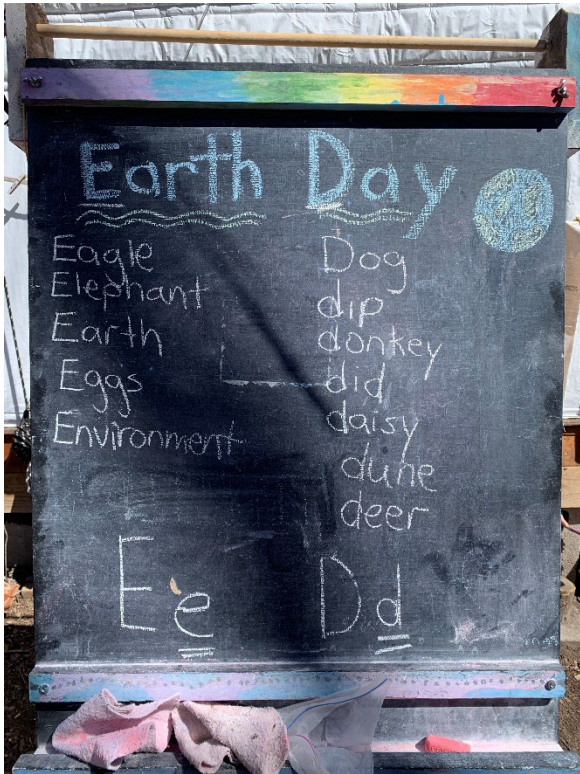 Earth Day
Eagle
Elephant
Earth
Eggs
Environment
Dog
dip
donkey
did
daisy
dune
deer
E e
D d